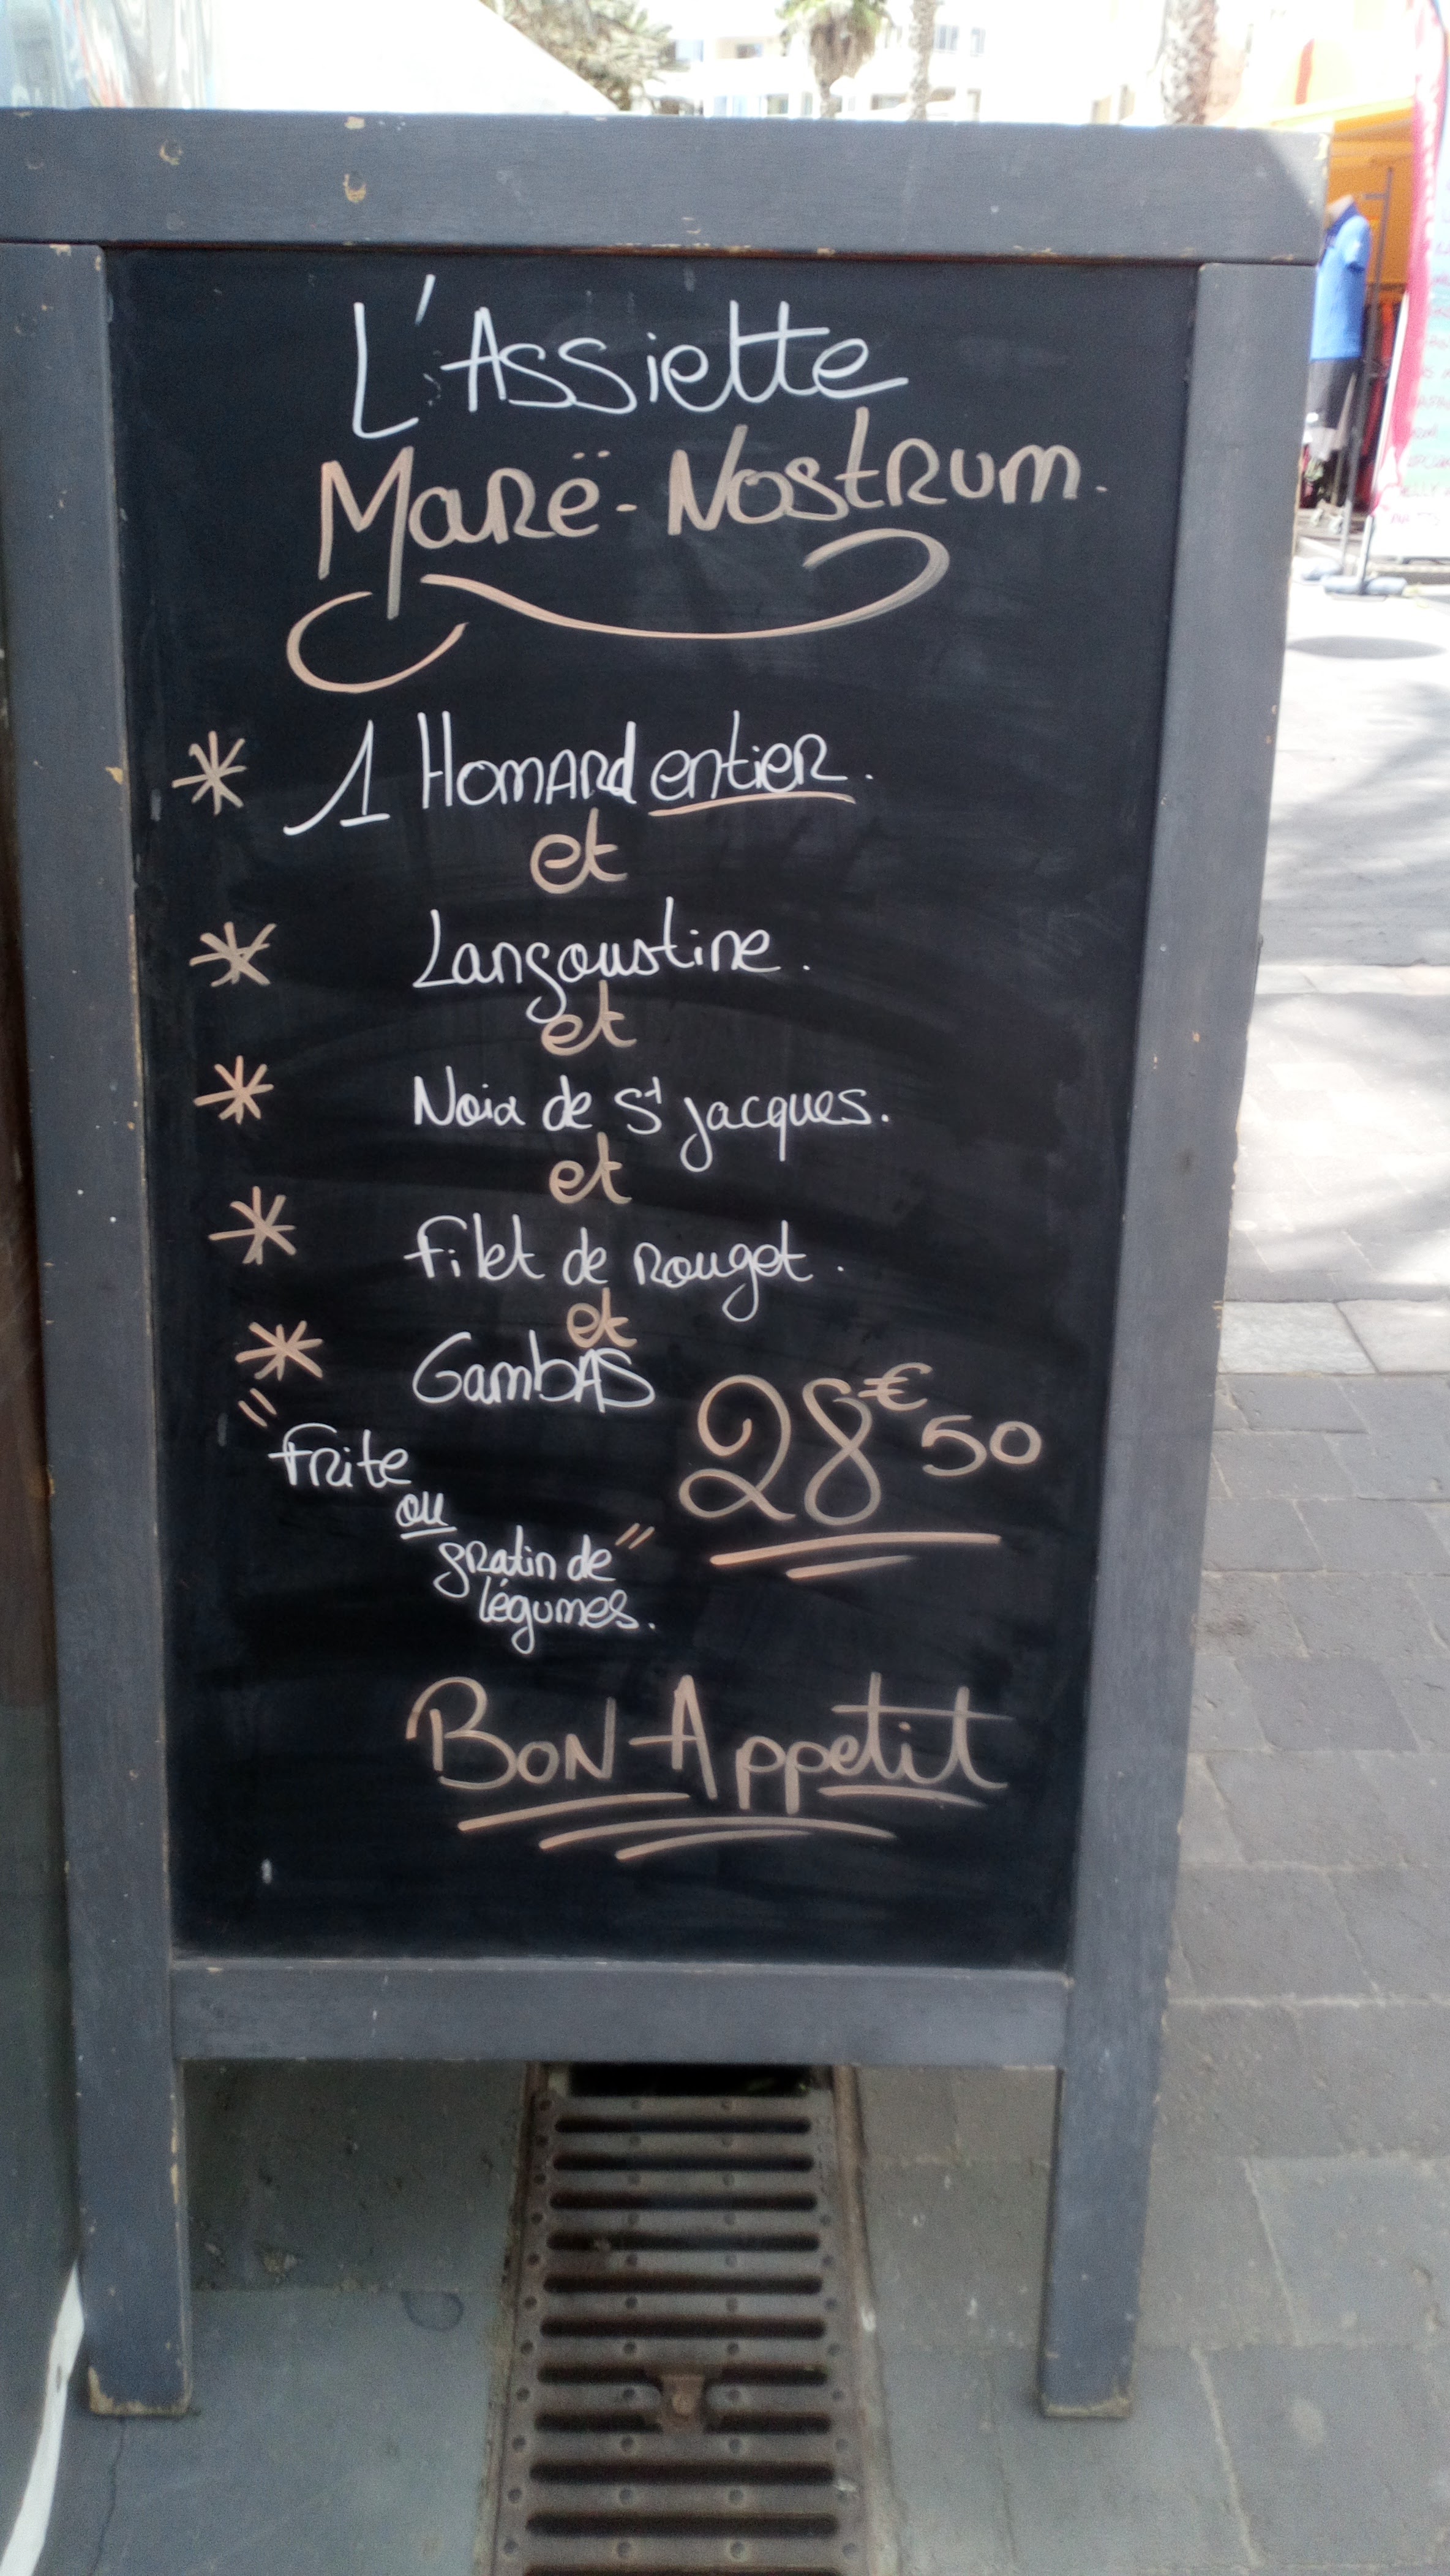 L'Assiette
Marë-Nostrum.
* 1 Homard entier.
et
* Langoustine.
et
* Noix de St jacques.
et
* filet de rouget.
et
* Gambas
28€50
"frite
ou
gratin de"
légumes.
Bon Appetit